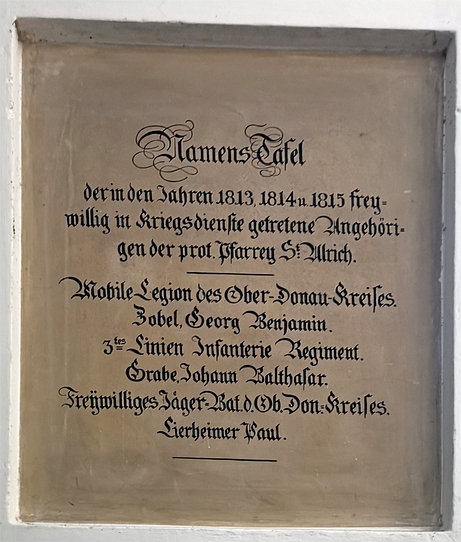 Namens Tafel
der in den Jahren 1813, 1814 u. 1815 frey=
willig in Kriegsdienste getretene Angehöri=
gen der prot. Pfarrey St. Ulrich.
Mobile Legion des Ober=Donau=Kreises.
Zobel, Georg Benjamin.
3tes Linien Infanterie Regiment.
Grabe, Johann Balthasar.
Freÿwilliges Jäger=Bat. d. Ob. Don. Kreises.
Lierheimer Paul.